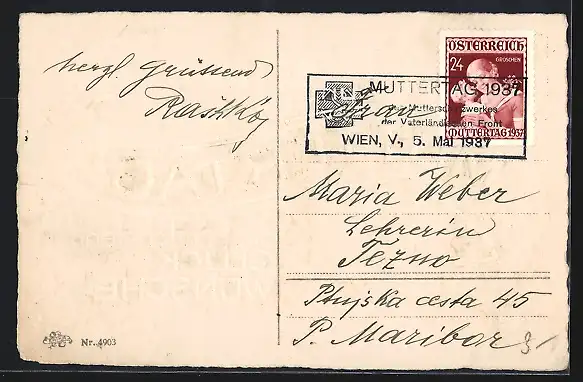 herzl. Grüssend
ÖSTERREICH
24
GROSCHEN
MUTTERTAG 1937
MUTTERTAG 1937
des Mutterschutzwerkes
der Vaterländischen Front
WIEN, V., 5. Mai 1937
Frau
Maria Weber
Lehrerin
Tezno
Ptujska cesta 45
P. Maribor
Nr. 4903